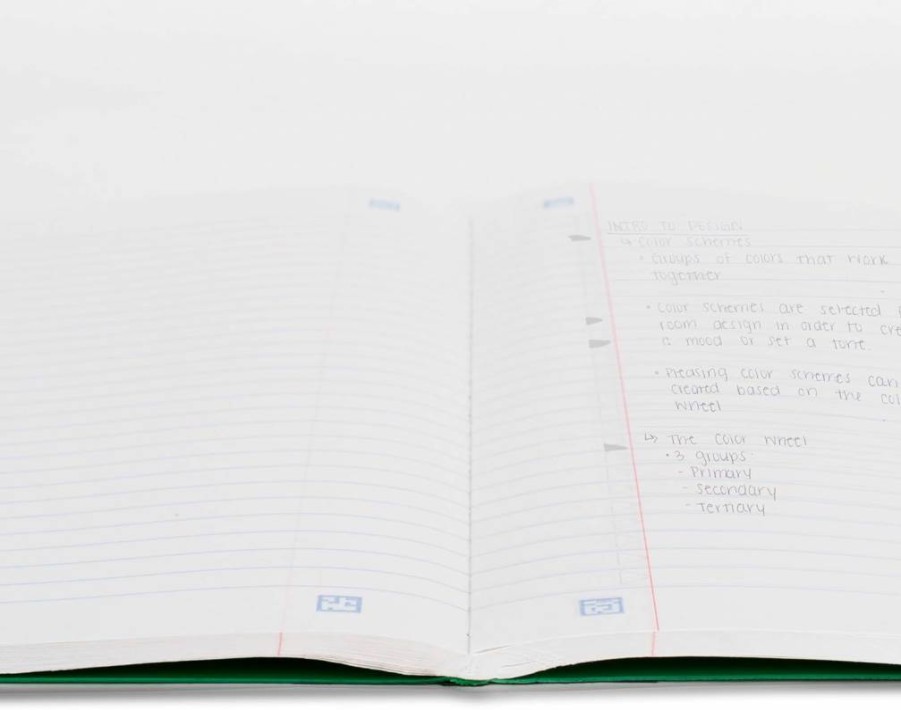 INTRO TO DESIGN
↳ Color schemes
• Groups of colors that work
together
• Color schemes are selected
room design in order to cre
a mood or set a tone.
• Pleasing color schemes can
created based on the col
wheel
↳ The color wheel
• 3 groups
- Primary
- secondary
- Tertiary